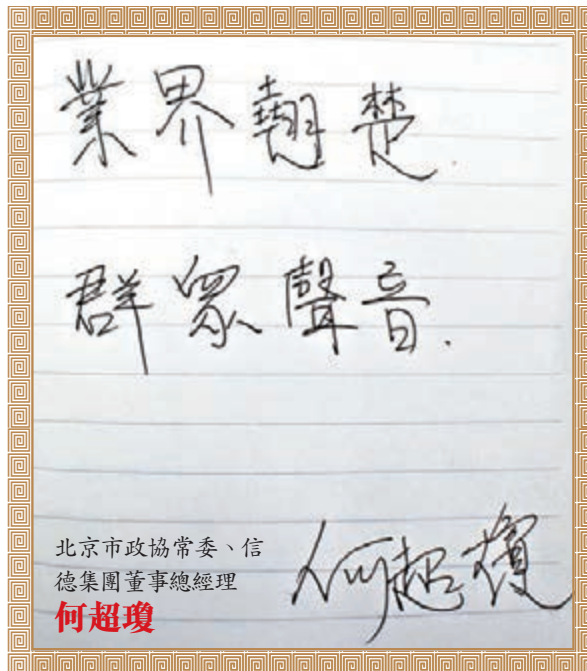 業界翹楚.
群眾聲音.
何超瓊
北京市政協常委、信
德集團董事總經理
何超瓊